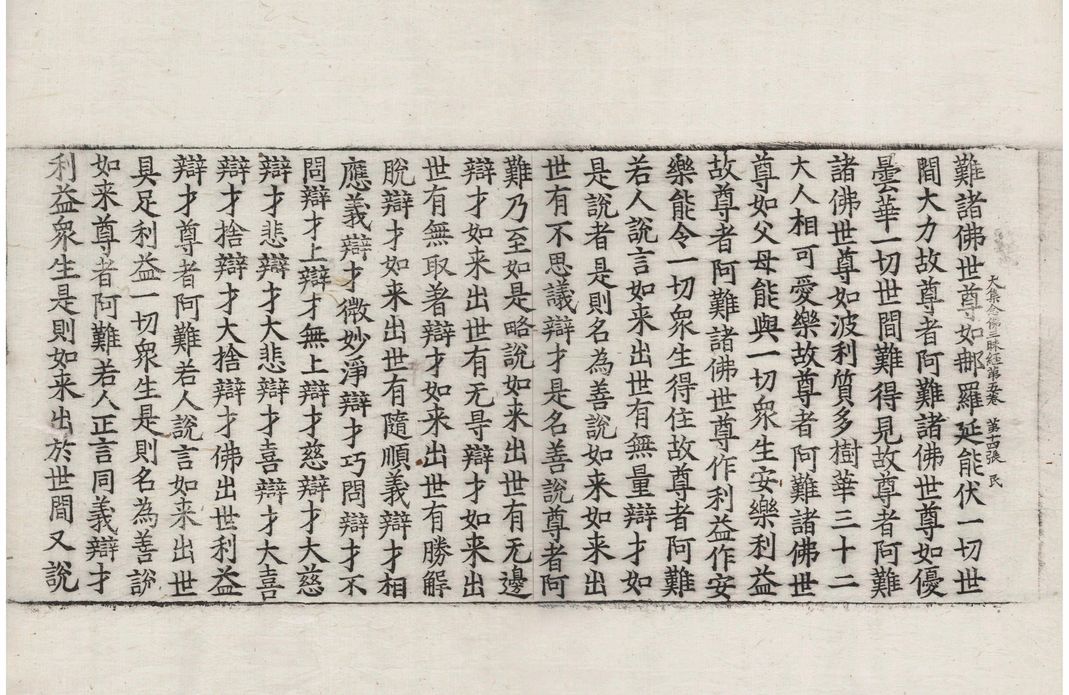 大集念佛三昧經第五卷 第十四張 民
難諸佛世尊如那羅延能伏一切世
間大力故尊者阿難諸佛世尊如優
曇華一切世間難得見故尊者阿難
諸佛世尊如波利質多樹華三十二
大人相可愛樂故尊者阿難諸佛世
尊如父母能與一切衆生安樂利益
故尊者阿難諸佛世尊作利益作安
樂能令一切衆生得住故尊者阿難
若人說言如来出世有無量辯才如
是說者是則名為善說如来如来出
世有不思議辯才是名善說尊者阿
難乃至如是略說如来出世有无邊
辯才如来出世有无㝵辯才如来出
世有無取著辯才如来出世有勝解
脫辯才如来出世有隨順義辯才相
應義辯才微妙淨辯才巧問辯才不
問辯才上辯才無上辯才慈辯才大慈
辯才悲辯才大悲辯才喜辯才大喜
辯才捨辯才大捨辯才佛出世利益
辯才尊者阿難若人說言如来出世
具足利益一切衆生是則名為善說
如来尊者阿難若人正言同義辯才
利益衆生是則如来出於世間又說